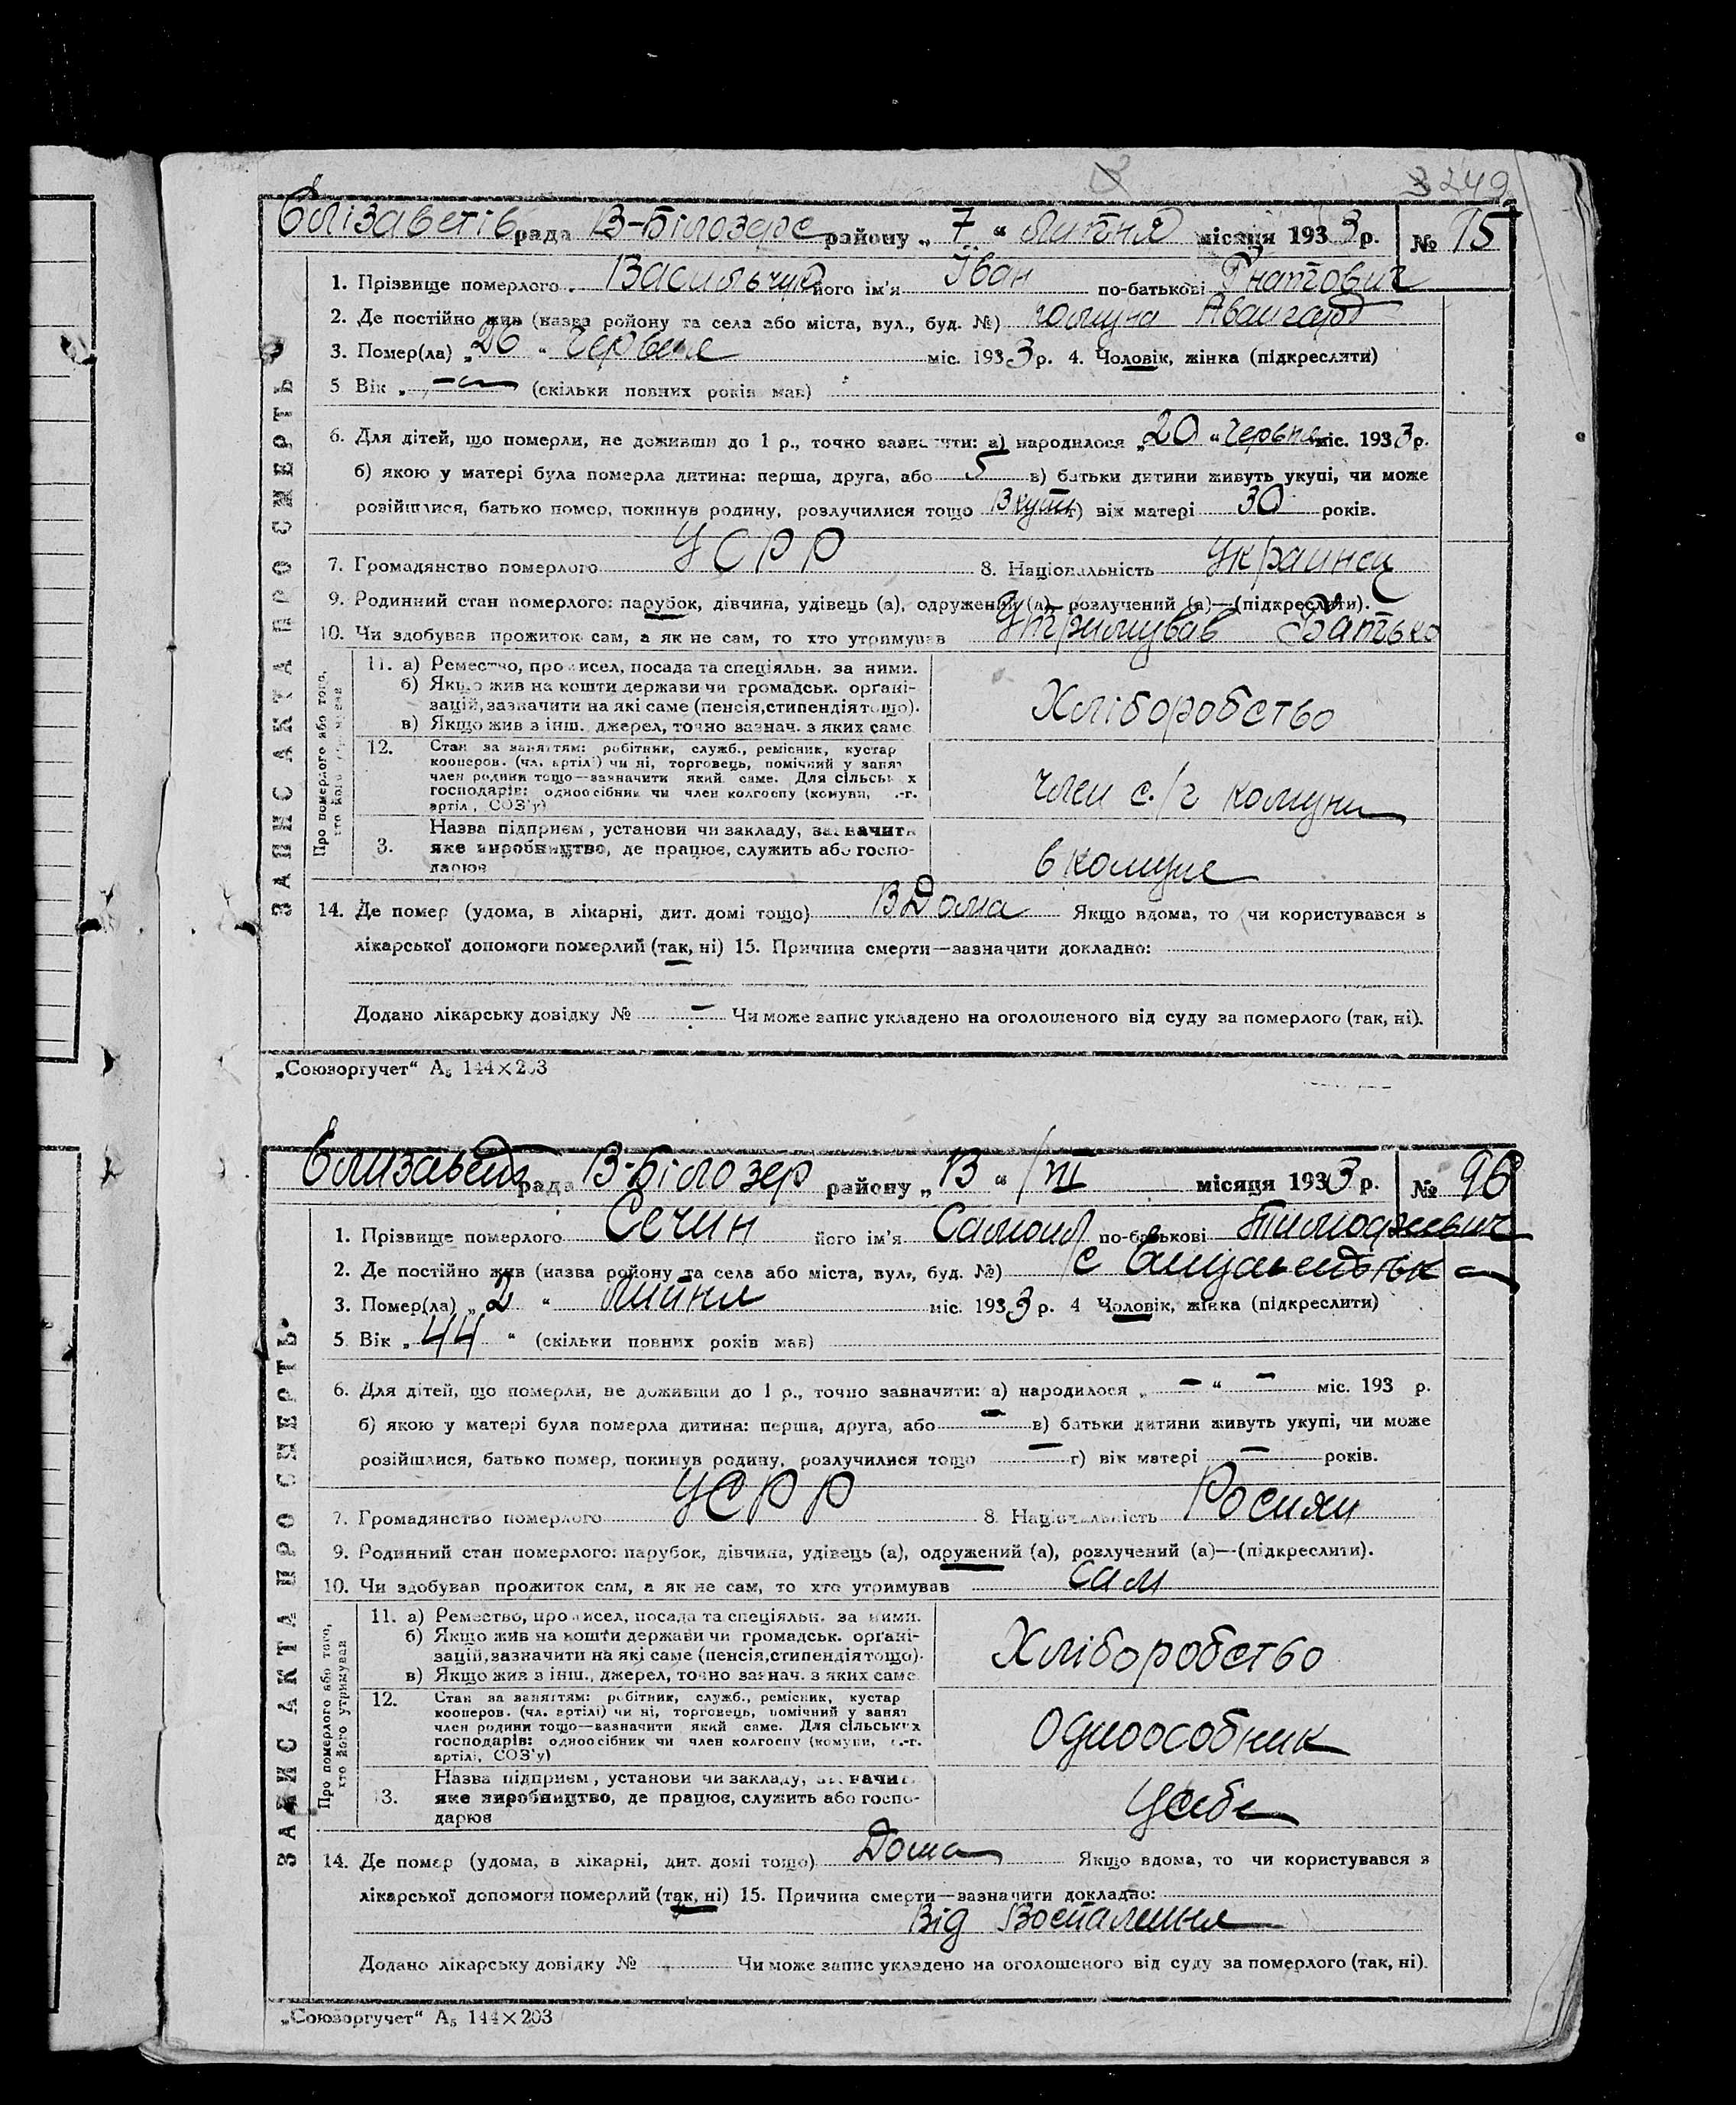 249
Єлізаветів рада В-Білозерс району „7“ липня місяця 1933 р. № 15
1. Прізвище померлого Васильчук його ім'я Іван по-батькові Гнатович
2. Де постійно жив (назва ройону та села або міста, вул., буд. №) комуна Авангард
3. Помер(ла) „26“ Червня міс. 1933 р. 4. Чоловік, жінка (підкреслити)
5 Вік „—“ (скільки повних років мав)
6. Для дітей, що померли, не доживши до 1 р., точно зазначити: а) народилося „20“ Червня міс. 1933 р.
б) якою у матері була померла дитина: перша, друга, або 5 в) батьки дитини живуть укупі, чи може
розійшлися, батько помер, покинув родину, розлучилися тощо Вкупі г) вік матері 30 років.
7. Громадянство померлого УСРР 8. Національність Украинец
9. Родинний стан померлого: парубок, дівчина, удівець (а), одружений (а), розлучений (а)—(підкреслити).
10. Чи здобував прожиток сам, а як не сам, то хто утримував Утримував Батько
ЗАПИС АКТА ПРО СМЕРТЬ
Про померлого або того,
11. а) Ремество, промисел, посада та спеціяльн. за ними.
б) Якщо жив на кошти держави чи громадськ. органі-
зацій, зазначити на які саме (пенсія, стипендія тощо).
в) Якщо жив з інш. джерел, точно зазнач. з яких саме
Хліборобство
12. Стан за заняттям: робітник, служб., ремісник, кустар
кооперов. (чл. артілі) чи ні, торговець, помічний у занят
член родини тощо—зазначити який саме. Для сільських
господарів: одноосібник чи член колгоспу (комуни, с.-г.
артіл, СОЗ'у)
член с./г комуни
3. Назва підприєм, установи чи закладу, зазначити
яке виробництво, де працює, служить або госпо-
дарює
в комуне
14. Де помер (удома, в лікарні, дит. домі тощо) В Дома Якщо вдома, то чи користувався з
лікарської допомоги померлий (так, ні) 15. Причина смерти—зазначити докладно:
Додано лікарську довідку № — Чи може запис укладено на оголошеного від суду за померлого (так, ні).
„Союзоргучет“ А₅ 144×203
рада В-Білозер району „13“ місяця 1933 р. № 96
1. Прізвище померлого Сечин його ім'я по-батькові
2. Де постійно жив (назва ройону та села або міста, вул., буд. №) с
3. Помер(ла) „2“ міс. 1933 р. 4 Чоловік, жінка (підкреслити)
5. Вік „44“ (скільки повних років мав)
6. Для дітей, що померли, не доживши до 1 р., точно зазначити: а) народилося „—“ — міс. 193 р.
б) якою у матері була померла дитина: перша, друга, або — в) батьки дитини живуть укупі, чи може
розійшлися, батько помер, покинув родину, розлучилися тощо — г) вік матері — років.
7. Громадянство померлого УСРР 8. Національність Росиян
9. Родинний стан померлого: парубок, дівчина, удівець (а), одружений (а), розлучений (а)—(підкреслити).
10. Чи здобував прожиток сам, а як не сам, то хто утримував сам
ЗАПИС АКТА ПРО СМЕРТЬ
Про померлого або того,
хто його утримував
11. а) Ремество, промисел, посада та спеціяльн. за ними.
б) Якщо жив на кошти держави чи громадськ. органі-
зацій, зазначити на які саме (пенсія, стипендія тощо).
в) Якщо жив з інш., джерел, точно зазнач. з яких саме
Хліборобство
12. Стан за заняттям: робітник, служб., ремісник, кустар
кооперов. (чл. артілі) чи ні, торговець, помічний у занят
член родини тощо—зазначити який саме. Для сільських
господарів: одноосібник чи член колгоспу (комуни, с.-г.
артілі, СОЗ'у)
Одноособник
13. Назва підприєм, установи чи закладу, зазначит
яке виробництво, де працює, служить або госпо-
дарює
У себе
14. Де помер (удома, в лікарні, дит. домі тощо) Дома Якщо вдома, то чи користувався з
лікарської допомоги померлий (так, ні) 15. Причина смерти—зазначити докладно:
Від Воспалення
Додано лікарську довідку № Чи може запис укладено на оголошеного від суду за померлого (так, ні).
„Союзоргучет“ А₅ 144×203